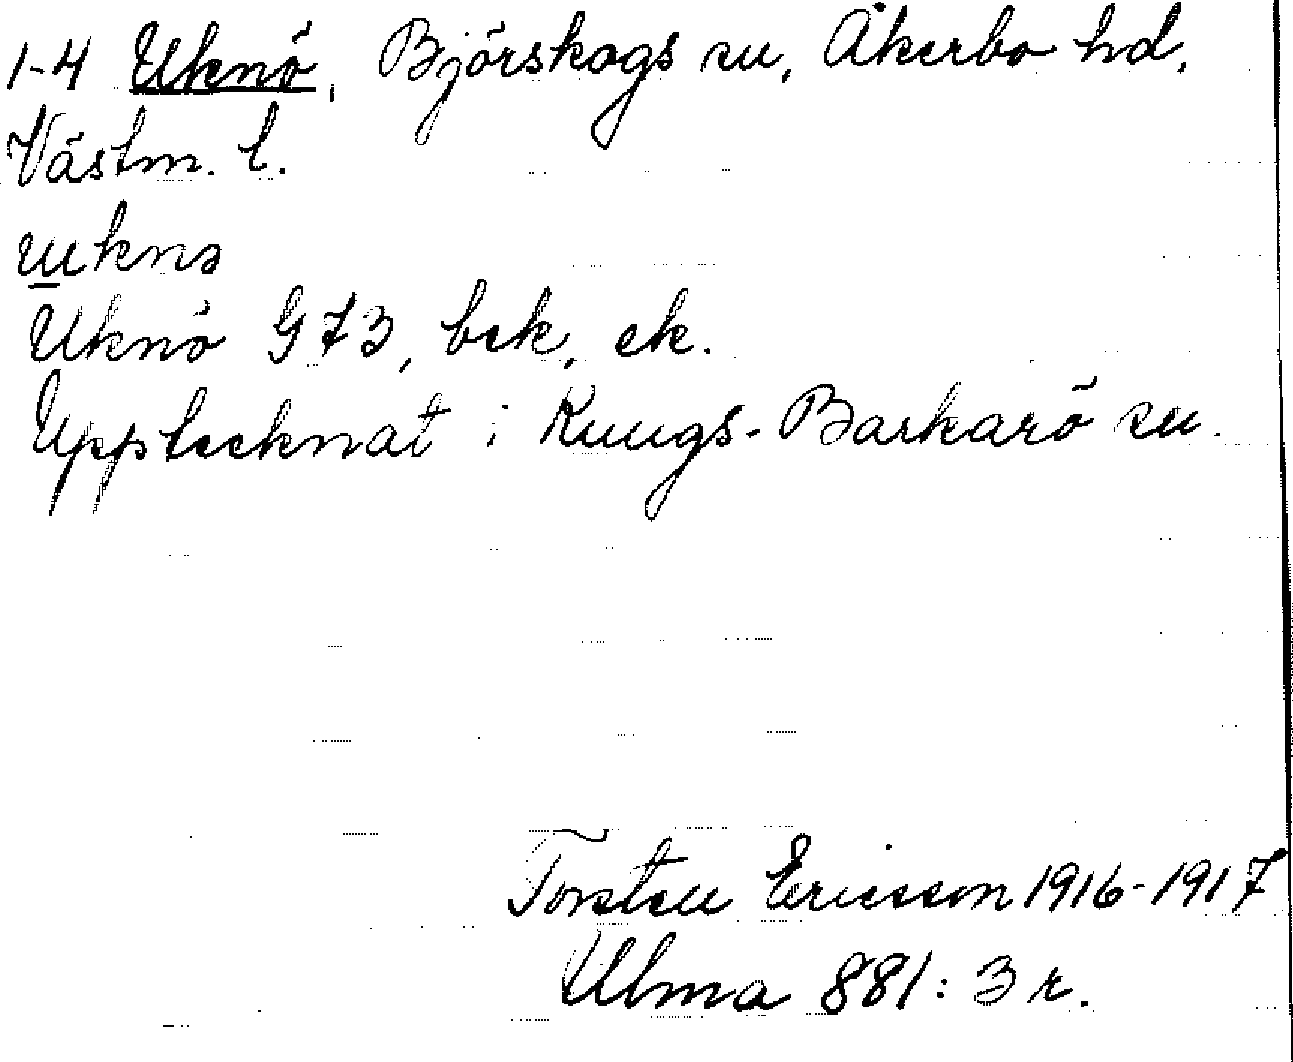 1-4 Uknö, Björskogs sn, Åkerbo hd,
Västm. l.
uknə
Uknö G73, bek, ek.
Upptecknat i Kungs-Barkarö sn.
Torsten Ericsson 1916-1917
Ulma 881:3 r.